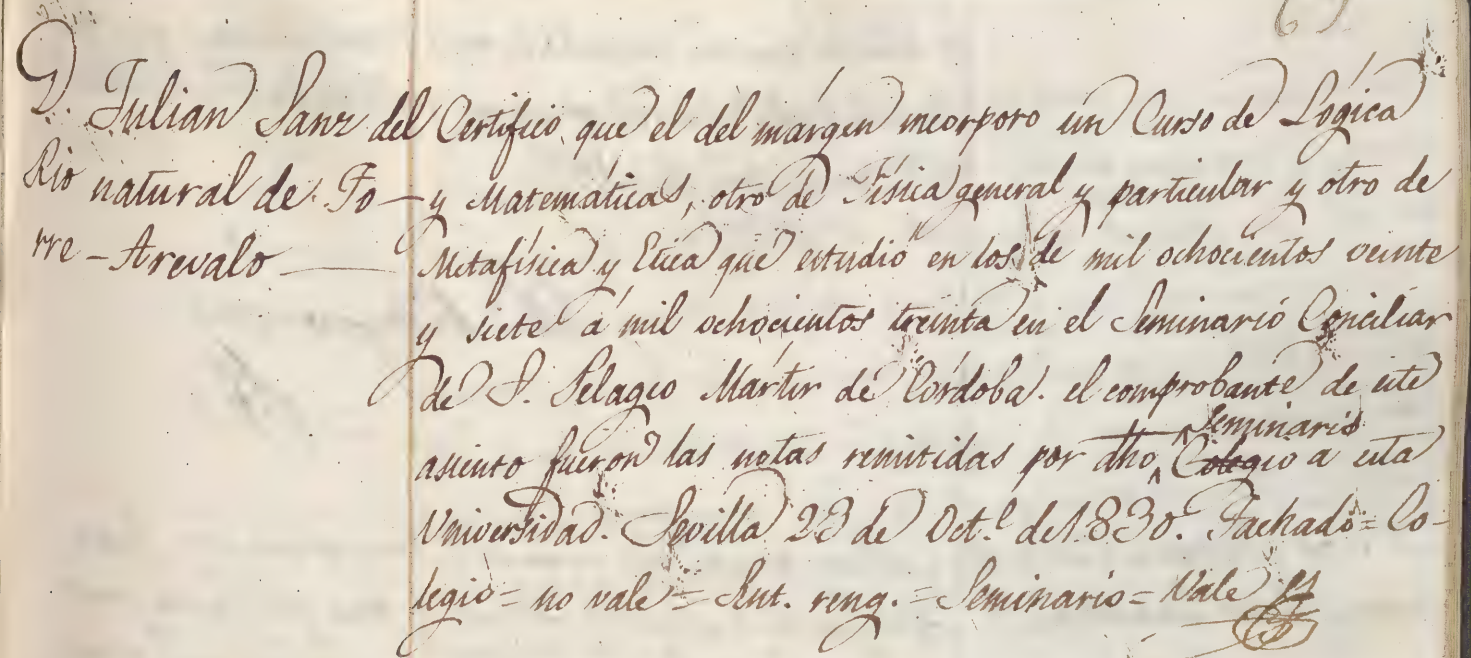 D. Julian Sanz del
Rio natural de To-
rre-Arevalo
Certifico que el del márgen incorporo un Curso de Lógica
y Matemáticas, otro de Física general y particular y otro de
Metafísica y Etica que estudió en los de mil ochocientos veinte
y siete á mil ochocientos treinta en el Seminario Conciliar
de S. Pelagio Mártir de Córdoba. el comprobante de este
asiento fueron las notas remitidas por dho Seminario Colegio a esta
Universidad. Sevilla 23 de Oct.e de 1830. Tachado = Co-
legio = no vale = Ent. reng. = Seminario = Vale